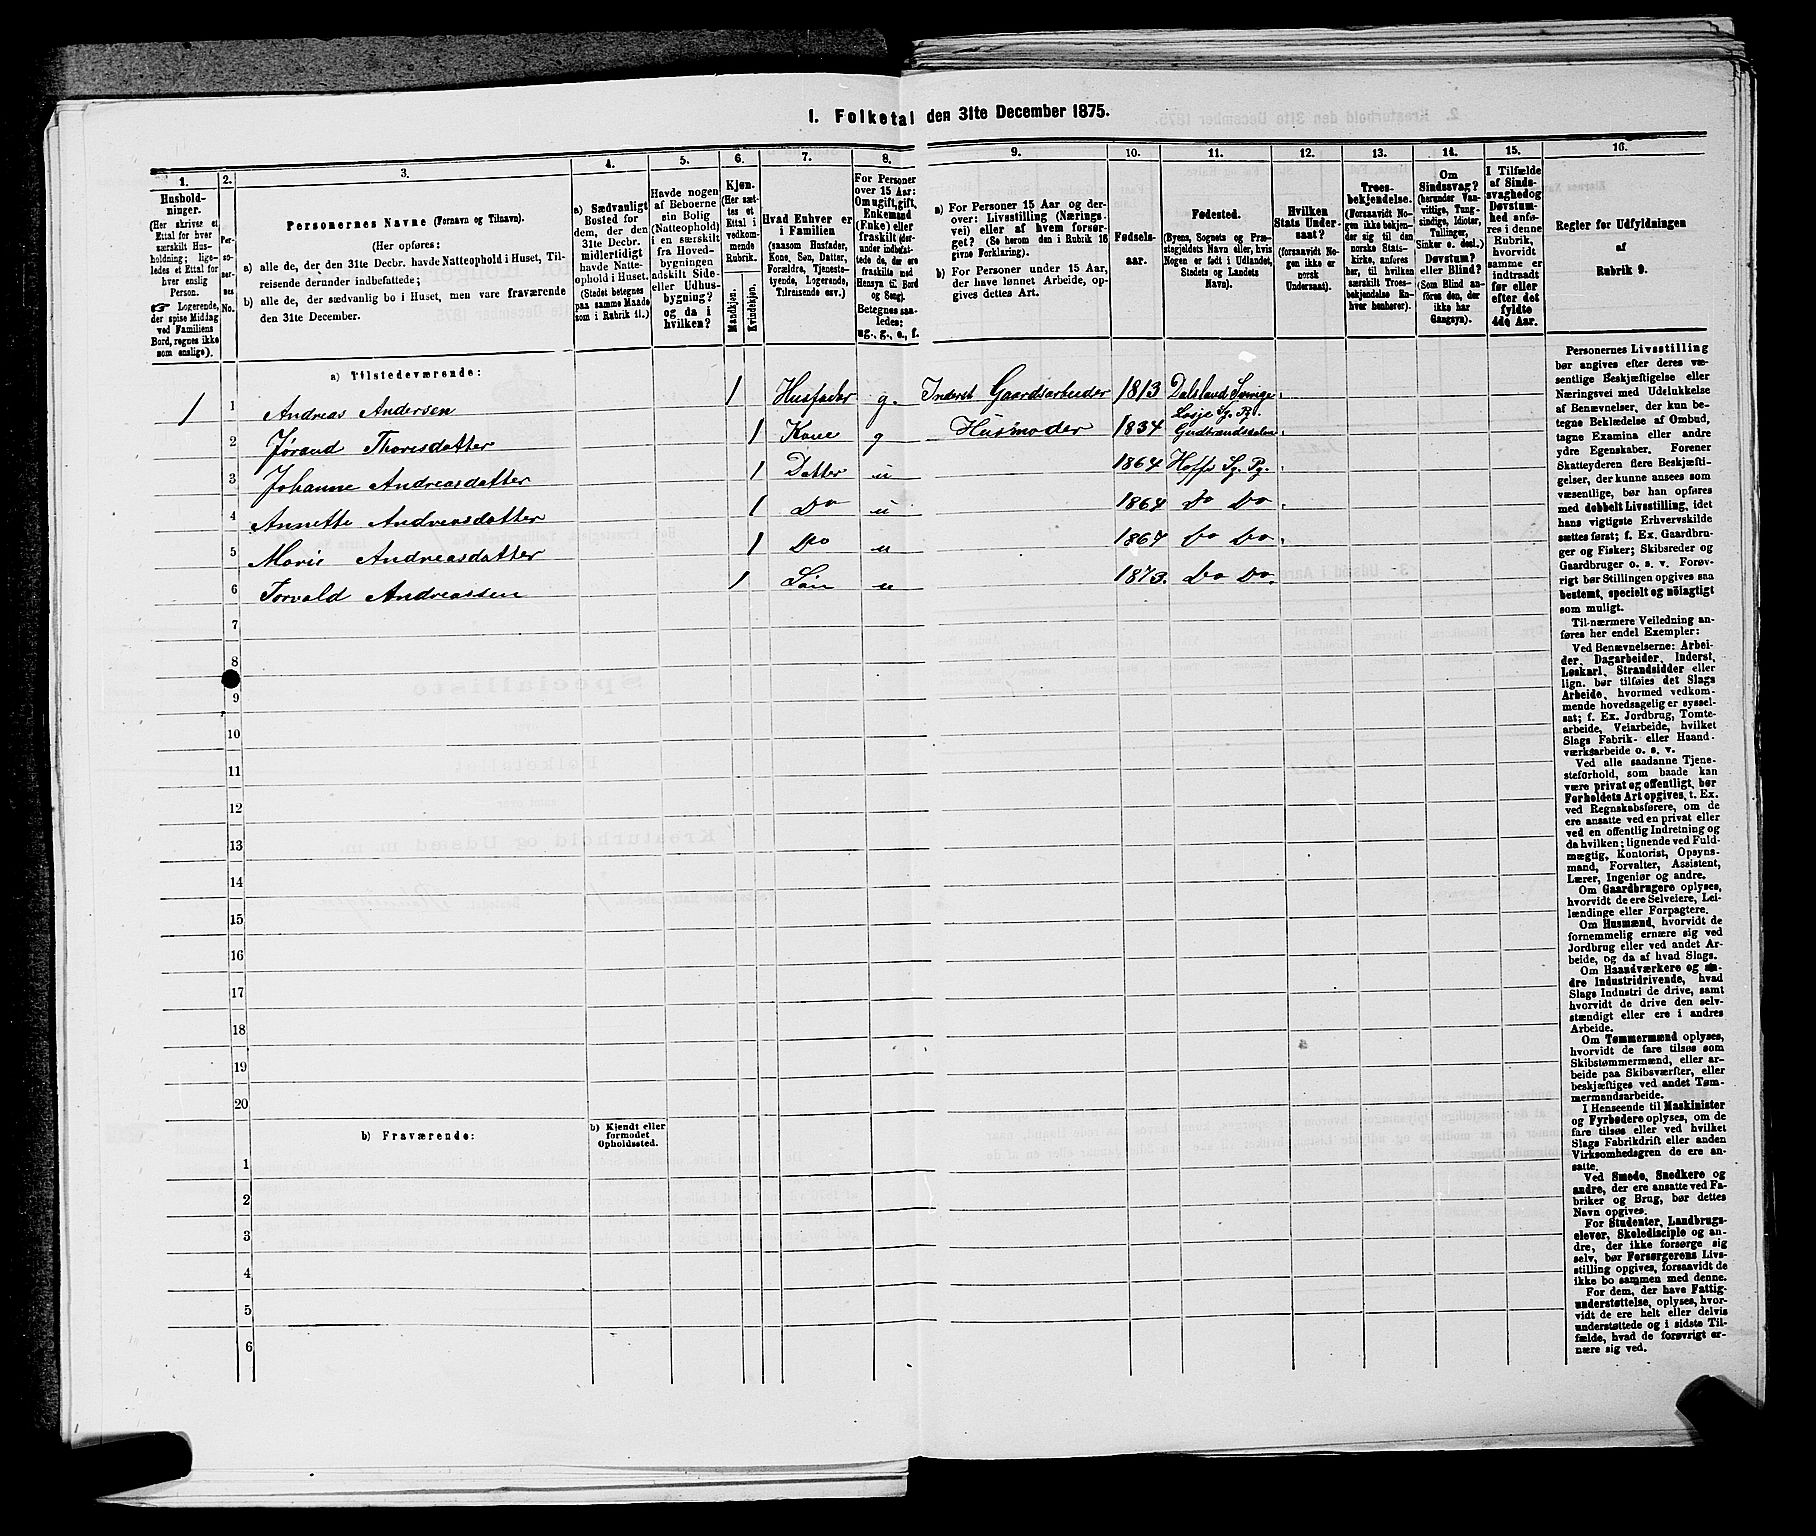 1. Folketal den 31te December 1875.
1. 2. 3. 4. 5. 6. 7. 8. 9. 10. 11. 12. 13. 14. 15. 16.
Hushold-
ninger.
(Her skrives et
Ettal for hver
særskilt Hus-
holdning; lige-
ledes et Ettal for
hver enslig
Person.
☞ Logerende,
der spise Middag
ved Familiens
Bord, regnes ikke
som enslige).
Per-
so-
ner-
nes
No.
Personernes Navne (Fornavn og Tilnavn).
(Her opføres:
a) alle de, der den 31te Decbr. havde Natteophold i Huset, Til-
reisende derunder indbefattede;
b) alle de, der sædvanlig bo i Huset, men vare fraværende
den 31te December.
a) Sædvanligt
Bosted for
dem, der den
31te Decbr.
midlertidigt
havde Natte-
ophold i Huset.
(Stedet betegnes
paa samme Maade
som i Rubrik 11.)
Havde nogen
af Beboerne
sin Bolig
(Natteophold)
i en særskilt
fra Hoved-
bygningen
adskilt Side-
eller Udhus-
bygning?
og da i
hvilken?
Kjøn.
(Her sæt-
tes et
Ettal i
vedkom-
mende
Rubrik.
Mandkjøn.
Kvindekjøn.
Hvad Enhver er
i Familien
(saasom Husfader,
Kone, Søn, Datter,
Forældre, Tjeneste-
tyende, Logerende,
Tilreisende osv.)
For Personer
over 15 Aar:
Om ugift, gift,
Enkemand
(Enke) eller
fraskilt (der-
under indbefat-
tede de, der ere
fraskilte med
Hensyn til Bord
og Seng).
Betegnes saa-
ledes:
ug., g., e., f.
a) For Personer 15 Aar og der-
over: Livsstilling (Nærings-
vei) eller af hvem forsør-
get? (Se herom den i Rubrik 16
givne Forklaring).
b) For Personer under 15 Aar,
der have lønnet Arbeide, op-
gives dettes Art.
Fødsels-
aar.
Fødested.
(Byens, Sognets og Præ-
stegjeldets Navn eller, hvis
Nogen er født i Udlandet,
Stedets og Landets
Navn).
Hvilken
Stats Under-
saat?
(forsaavidt No-
gen ikke er
norsk
Undersaat).
Troes-
bekjendelse.
(Forsaavidt No-
gen ikke bekjen-
der sig til den
norske Stats-
kirke, anføres
her, til hvilken
særskilt Troes-
bekjendelse En-
hver henhører).
Om
Sindssvag?
(herunder Van-
vittige, Tung-
sindige, Idioter,
Tullinger,
Sinker o. desl.)
Døvstum?
eller Blind?
(Som Blind an-
føres den, der
ikke har
Gangsyn).
I Tilfælde
af Sinds-
svaghed og
Døvstum-
hed anfø-
res i denne
Rubrik,
hvorvidt
samme er
indtraadt
før eller
efter det
fyldte
4de Aar.
Regler for Udfyldningen
af
Rubrik 9.
a) Tilstedeværende:
1 1 Andreas Andersen 1 Husfader g. Inderst Gaardsarbeider 1813 Dalsland Sverige
2 Jørand Thoresdatter 1 Kone g Husmoder 1834 Lesje S. P. Gudbrandsdalen
3 Johanne Andreasdatter 1 Datter u 1864 Hoffs Sg. Pg.
4 Annette Andreasdatter 1 Do u 1864 Do Do
5 Marie Andreasdatter 1 Do u 1867 Do Do
6 Torvald Andreassen 1 Søn u 1873. Do Do.
7
8
9
10
11
12
13
14
15
16
17
18
19
20
b) Fraværende:
b) Kjendt eller
formodet
Opholdssted.
1
2
3
4
5
6
Personernes Livsstilling
bør angives efter deres væ-
sentlige Beskjæftigelse eller
Næringsvei med Udelukkelse
af Benævnelser, der kun be-
tegne Beklædelse af Ombud,
tagne Examina eller andre
ydre Egenskaber. Forener
Skatteyderen flere Beskjæfti-
gelser, der kunne ansees som
væsentlige, bør han opføres
med dobbelt Livsstilling, idet
hans vigtigste Erhvervskilde
sættes først; f. Ex. Gaardbru-
ger og Fisker; Skibsreder og
Gaardbruger o. s. v. Forøv-
rigt bør Stillingen opgives saa
bestemt, specielt og nøiagtigt
som muligt.
Til nærmere Veiledning an-
føres her endel Exempler:
Ved Benævnelserne: Arbei-
der, Dagarbeider, Inderst,
Løskarl, Strandsidder eller
lign. bør tilføies det Slags
Arbeide, hvormed vedkom-
mende hovedsagelig er syssel-
sat; f. Ex. Jordbrug, Tomte-
arbeide, Veiarbeide, hvilket
Slags Fabrik- eller Haand-
værksarbeide o. s. v.
Ved alle saadanne Tjene-
steforhold, som baade kan
være privat og offentligt, bør
Forholdets Art opgives, t. Ex.
ved Regnskabsførere, om de
ere ansatte ved en privat eller
ved en offentlig Indretning og
da hvilken; lignende ved Fuld-
mægtig, Kontorist, Opsyns-
mand, Forvalter, Assistent,
Lærer, Ingeniør og andre.
Om Gaardbrugere oplyses,
hvorvidt de ere Selveiere, Lei-
lændinge eller Forpagtere.
Om Husmænd, hvorvidt de
fornemmelig ernære sig ved
Jordbrug eller ved andet Ar-
beide, og da af hvad Slags.
Om Haandværkere og an-
dre Industridrivende, hvad
Slags Industri de drive, samt
hvorvidt de drive den selv-
stændigt eller ere i andres
Arbeide.
Om Tømmermænd oplyses,
hvorvidt de fare tilsøs som
Skibstømmermænd, eller ar-
beide paa Skibsværfter, eller
beskjæftiges ved andet Tøm-
mermandsarbeide.
I Henseende til Maskinister
og Fyrbødere oplyses, om de
fare tilsøs eller ved hvilket
Slags Fabrikdrift eller anden
Virksomhedsgren de ere an-
satte.
Ved Smede, Snedkere og
andre, der ere ansatte ved Fa-
briker og Brug, bør dettes
Navn opgives.
For Studenter, Landbrugs-
elever, Skoledisciple og an-
dre, der ikke forsørge sig
selv, bør Forsørgerens Livs-
stilling opgives, forsaavidt de
ikke bo sammen med denne.
For dem, der have Fattig-
understøttelse, oplyses, hvor-
vidt de ere helt eller delvis
understøttede og i sidste Til-
fælde, hvad de forøvrigt er-
nære sig ved.